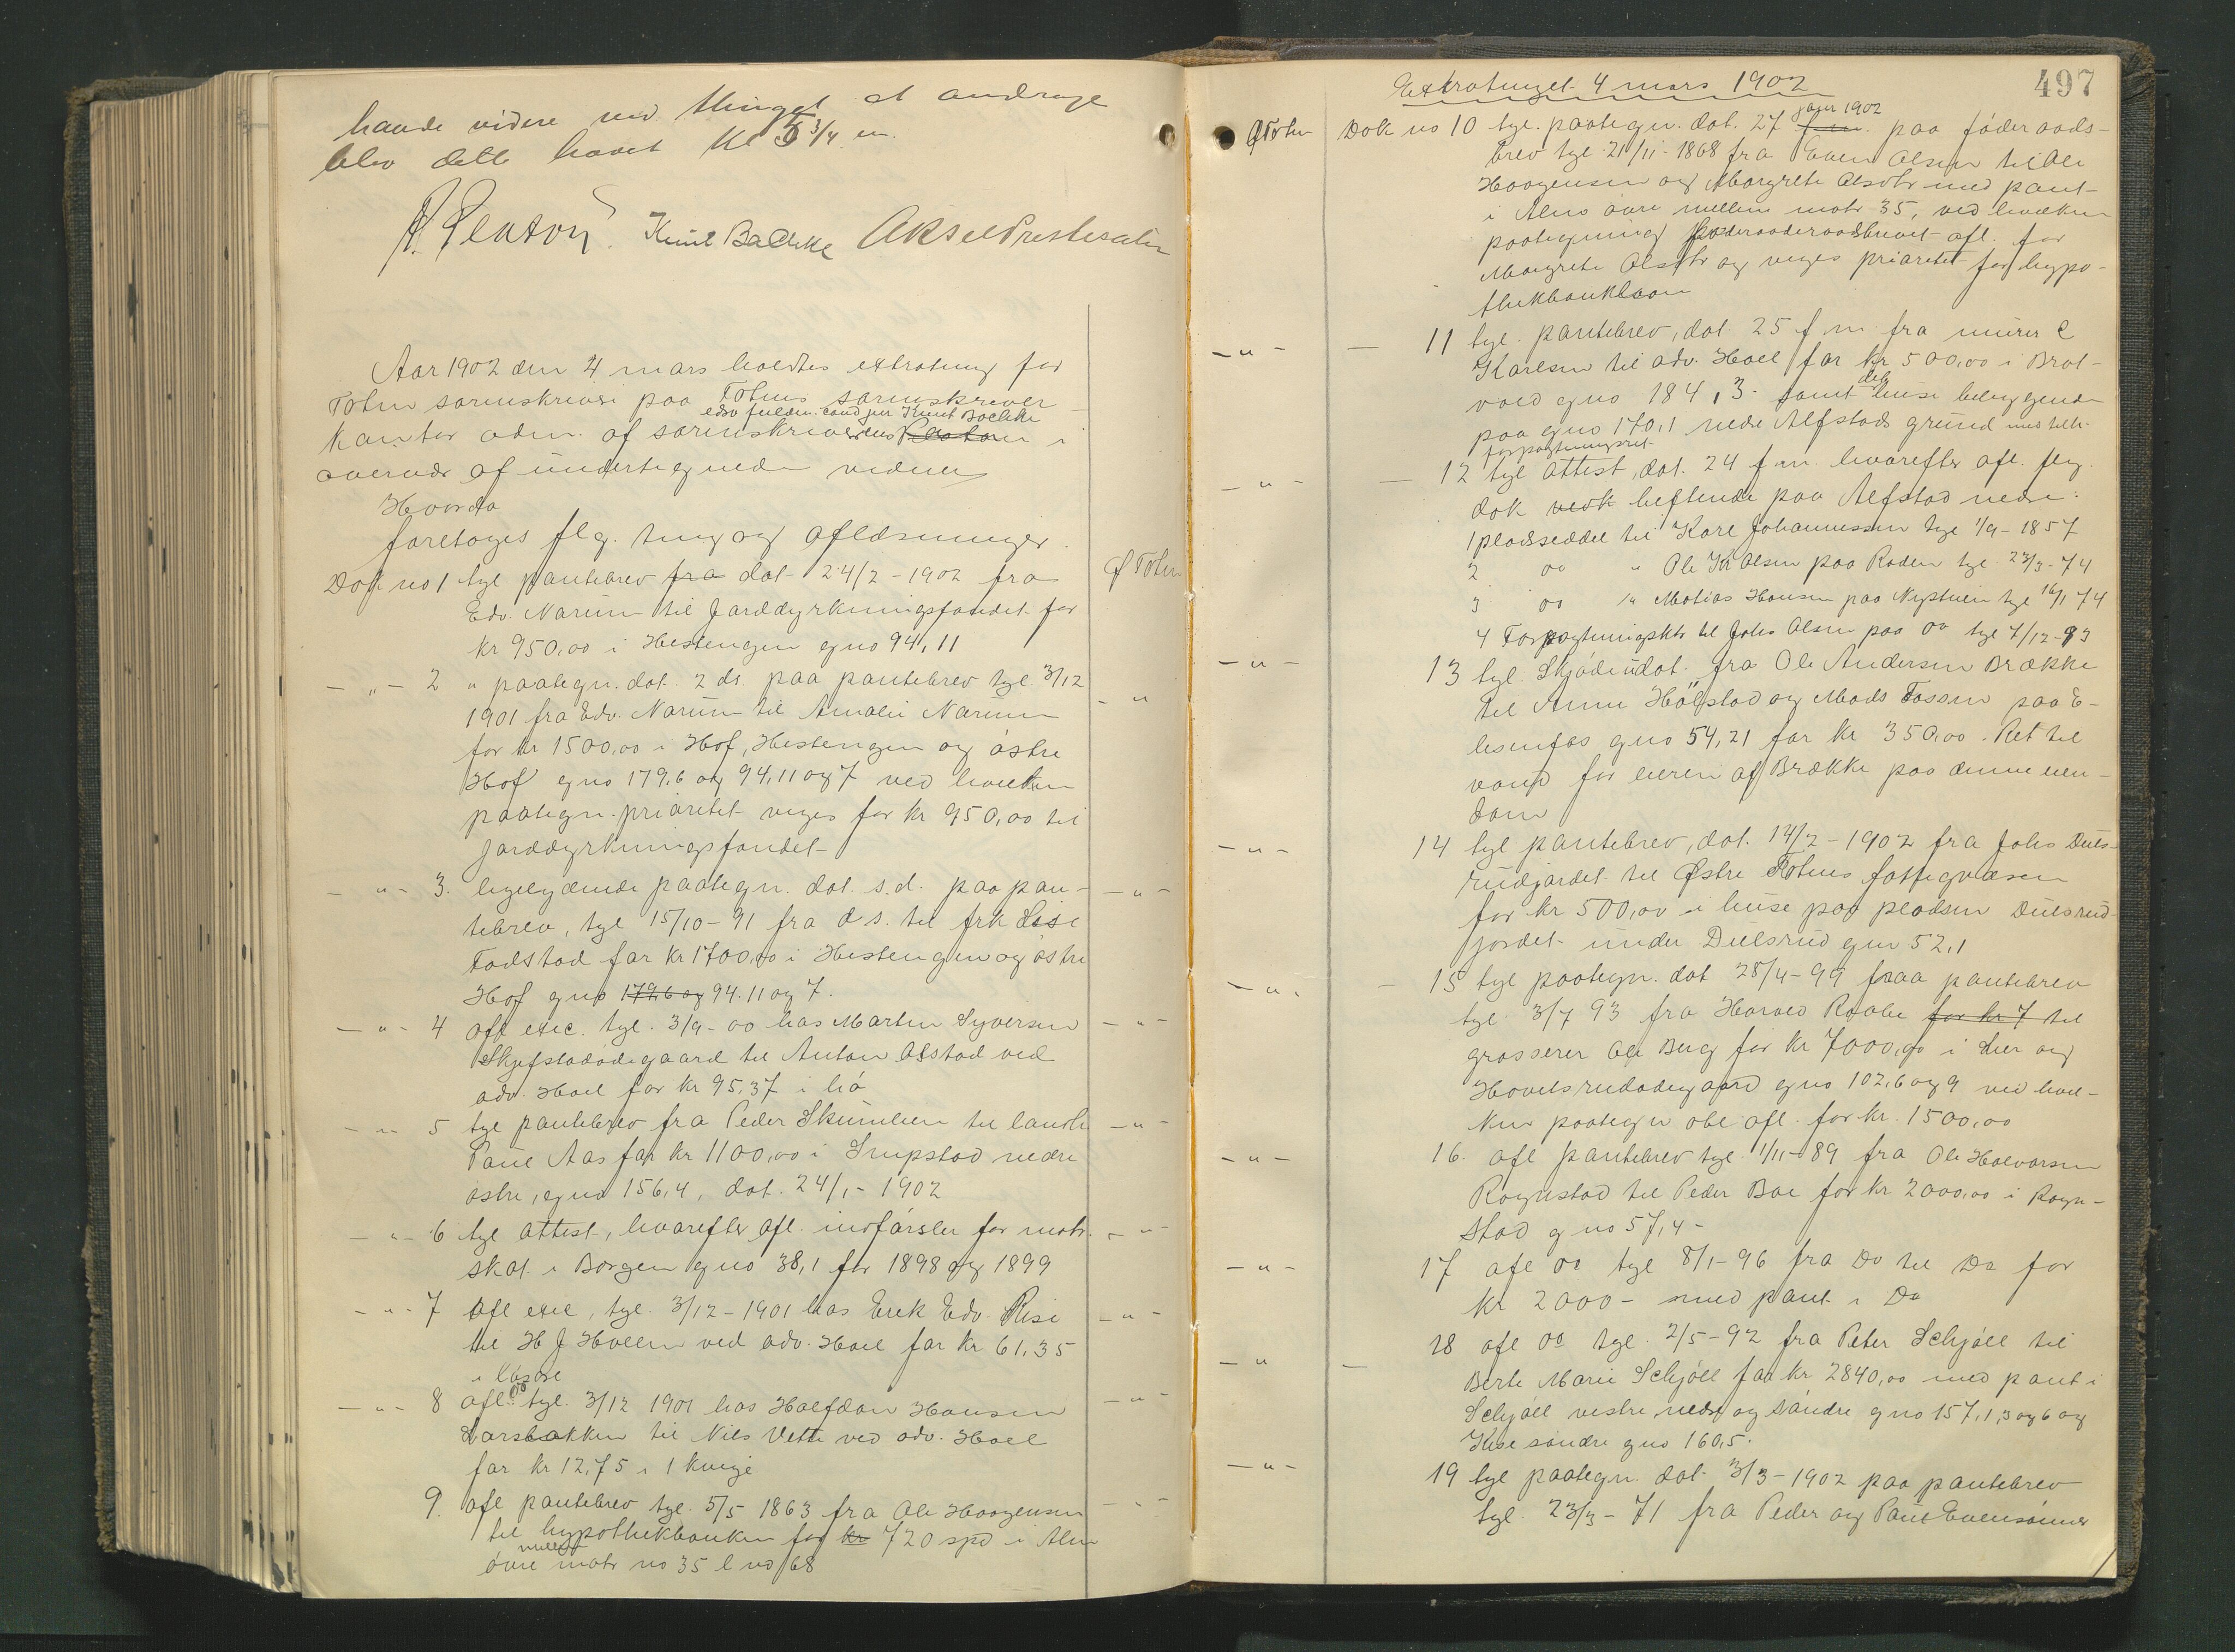 havde videre ved thinget at andrage
blev dette hævet Kl 5 3/4 em.
Knut Baehke Aksel Prestesæter
Aar 1902 den 4 mars holdtes extrating for
Toten sorenskriveri paa Totens sorenskriver
edsv fuldm. cand jur Knut Baehke
kontor adm. af sorenskriverens i
overvær af undertegnede vidner
Hvorda
foretoges flg. ting og aflæsninger.
Dok no 1 tgl pantebrev fra dat 24/2 - 1902 fra Ø Toten
Edv. Narum til Jorddyrkningsfondet for
kr 950,00 i Hestengen gno 94,11
- " - 2 " paategn. dat. 2 ds. paa pantebrev tgl. 3/12 - "
1901 fra Edv. Narum til Amalie Narum
for kr 1500,00 i Hof, Hestengen og østre
Hof gno 179,6 og 94,11 og 7 ved hvilken
paategn. prioritet viges for kr 950,00 til
jorddyrkningsfondet
- " - 3. ligelydende paategn. dat. s.d. paa pan- - " -
tebrev, tgl 15/10 - 91 fra d s. til frk Lise
Fodstad for kr 1700,00 i Hestengen og østre
Hof gno 179,6 og 94.11 og 7.
- " - 4 afl exec. tgl. 3/9 - 00 hos Martin Syversen - " -
Skjefstadødegaard til Anton Alstad ved
adv. Hoel for kr 95,37 i hø
- " - 5 tgl pantebrev fra Peder Skumlien til landh - " -
Paul Aas for kr 1100,00 i Smpstad nedre
østre, gno 156,4, dat. 24/1 - 1902
- " - 6 tgl attest, hvorefter afl. indførsler for matr. - " -
skat i Borgen gno 38,1 for 1898 og 1899
- " - 7 afl exec, tgl. 3/12 - 1901 hos Erik Edv. Risé - " -
til H J Hollen ved adv. Hoel for kr 61,35
i løsøre
- " - 8 afl. do tgl. 3/12 1901 hos Halfdan Hansen - " -
Larsbakken til Nils Vette ved adv. Hoel
for kr 12,75 i 1 kvige
9. afl pantebrev tgl. 5/5 1863 fra Ole Haagensen - " -
til hypothekbanken for kr 720 spd i Alm
mellem
øvre matr no 35 l no 68
497
Extratinget 4 mars 1902
janr 1902
Ø Toten Dok no 10 tgl. paategn. dat. 27 f.m. paa føderaads-
brev tgl 21/11 - 1868 fra Even Olsen til Ole
Haagensen og Margrete Olsdtr med pant
i Alm øvre mellem matr 35, ved hvilken
paategning føderaaderaadsbrevet afl. for
Margrete Olsdtr og viges prioritet for hypo-
thekbanklaan
- " - - 11 tgl. pantebrev, dat 25 f.m. fra murer C
Karlsen til adv. Hoel for kr 500,00 i Brat-
vold gno 184,3 - samt del huse beliggende
paa gno 170,1 nedre Alfstads grund med tilh.
forpagtningsret
- " - - 12 tgl attest, dat. 24 f.m. hvorefter afl. flg.
dok vedk heftende paa Alfstad nedre:
1 pladsseddel til Karl Johannessen tgl 1/9 - 1857
2 do " Ole Kr Olsen paa Roden tgl. 23/3 - 74
3 do " Matias Hansen paa Nystuen tgl 16/1 74
4 Forpagtningsktr til Johs Olsen paa do tgl 7/12 - 93
- " - 13 tgl. Skjøde udat. fra Ole Andersen Brække
til Anne Hølstad og Mads Fossen paa E-
lisenfos gno 54,21 for kr 350,00. Ret til
vand for eieren af Brække paa denne eien-
dom
- " - 14 tgl pantebrev, dat. 14/2 - 1902 fra Johs Duls-
rudjordet til Østre Totens fattigvæsen
for kr 500,00 i huse paa pladsen Dulsrud-
jordet under Dulsrud gno 52,1
- " - - 15 tgl paategn. dat 28/4 - 99 paa pantebrev
tgl. 3/7 93 fra Harald Raabe for kr 7 til
grosserer Ole Berg for kr 7000,00 i Lier og
Hovelsrudødegaard gno 102,6 og 9 ved hvil-
ken paategn obl afl. for kr. 1500,00
- " - 16. afl pantebrev tgl. 1/11 - 89 fra Ole Halvorsen
Rognstad til Peder Boe for kr 2000,00 i Rogn-
stad gno 57,4 -
- " - 17 afl do tgl 8/1 - 96 fra Do til Do for
kr 2000 - med pant i Do
- " - 18 afl do tgl. 2/5 - 92 fra Peter Schjøll til
Berte Marie Schjøll for kr 2840,00 med pant i
Schjøll vestre, nedre og søndre gno 157,1,3 og 6 og
Kise søndre gno 160,5.
- " - 19 tgl paategn. dat 3/3 - 1902 paa pantebrev
tgl. 23/3 - 71 fra Peder og Paul Evensønner